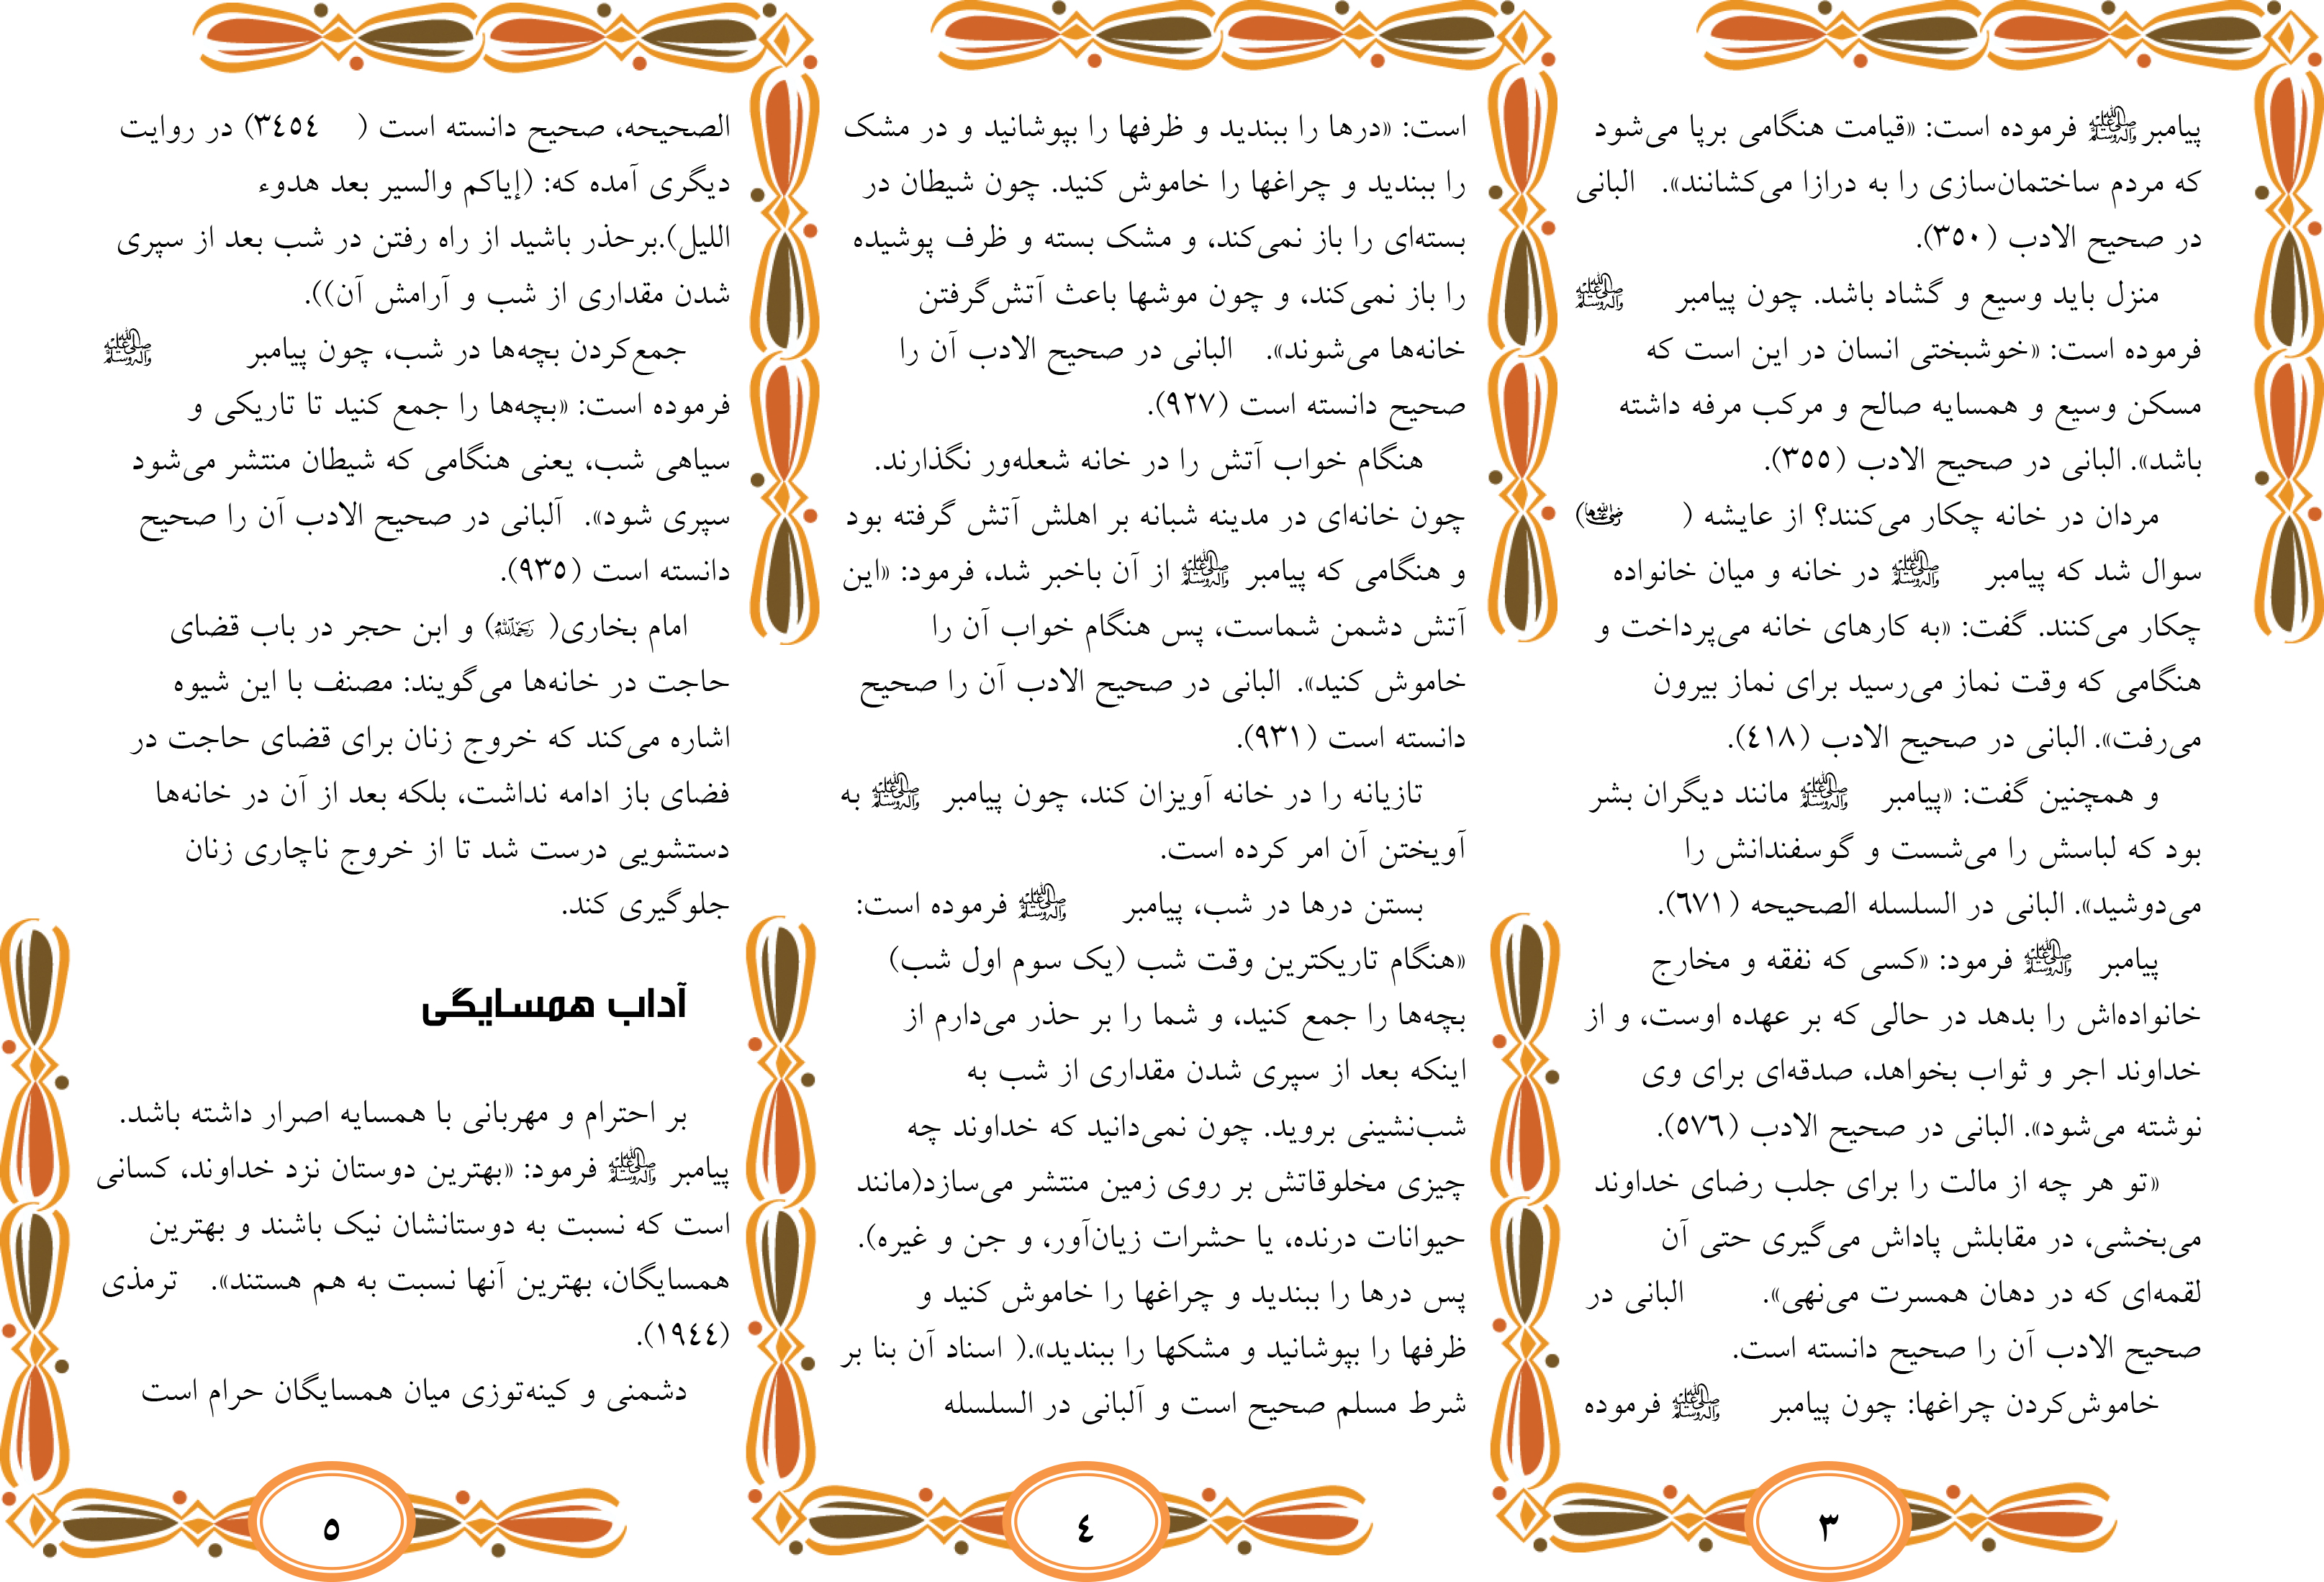 پیامبر ﷺ فرموده است: «قیامت هنگامی برپا می‌شود
که مردم ساختمان‌سازی را به درازا می‌کشانند». البانی
در صحیح الادب (٣٥٠).
منزل باید وسیع و گشاد باشد. چون پیامبر ﷺ
فرموده است: «خوشبختی انسان در این است که
مسکن وسیع و همسایه صالح و مرکب مرفه داشته
باشد». البانی در صحیح الادب (٣٥٥).
مردان در خانه چکار می‌کنند؟ از عایشه (رضی الله عنها)
سوال شد که پیامبر ﷺ در خانه و میان خانواده
چکار می‌کنند. گفت: «به کارهای خانه می‌پرداخت و
هنگامی که وقت نماز می‌رسید برای نماز بیرون
می‌رفت». البانی در صحیح الادب (٤١٨).
و همچنین گفت: «پیامبر ﷺ مانند دیگران بشر
بود که لباسش را می‌شست و گوسفندانش را
می‌دوشید». البانی در السلسله الصحیحه (٦٧١).
پیامبر ﷺ فرمود: «کسی که نفقه و مخارج
خانواده‌اش را بدهد در حالی که بر عهده اوست، و از
خداوند اجر و ثواب بخواهد، صدقه‌ای برای وی
نوشته می‌شود». البانی در صحیح الادب (٥٧٦).
«تو هر چه از مالت را برای جلب رضای خداوند
می‌بخشی، در مقابلش پاداش می‌گیری حتی آن
لقمه‌ای که در دهان همسرت می‌نهی». البانی در
صحیح الادب آن را صحیح دانسته است.
خاموش‌کردن چراغها: چون پیامبر ﷺ فرموده
٣
است: «درها را ببندید و ظرفها را بپوشانید و در مشک
را ببندید و چراغها را خاموش کنید. چون شیطان در
بسته‌ای را باز نمی‌کند، و مشک بسته و ظرف پوشیده
را باز نمی‌کند، و چون موشها باعث آتش‌گرفتن
خانه‌ها می‌شوند». البانی در صحیح الادب آن را
صحیح دانسته است (٩٢٧).
هنگام خواب آتش را در خانه شعله‌ور نگذارند.
چون خانه‌ای در مدینه شبانه بر اهلش آتش گرفته بود
و هنگامی که پیامبر ﷺ از آن باخبر شد، فرمود: «این
آتش دشمن شماست، پس هنگام خواب آن را
خاموش کنید». البانی در صحیح الادب آن را صحیح
دانسته است (٩٣١).
تازیانه را در خانه آویزان کند، چون پیامبر ﷺ به
آویختن آن امر کرده است.
بستن درها در شب، پیامبر ﷺ فرموده است:
«هنگام تاریکترین وقت شب (یک سوم اول شب)
بچه‌ها را جمع کنید، و شما را بر حذر می‌دارم از
اینکه بعد از سپری شدن مقداری از شب به
شب‌نشینی بروید. چون نمی‌دانید که خداوند چه
چیزی مخلوقاتش بر روی زمین منتشر می‌سازد(مانند
حیوانات درنده، یا حشرات زیان‌آور، و جن و غیره).
پس درها را ببندید و چراغها را خاموش کنید و
ظرفها را بپوشانید و مشکها را ببندید».( اسناد آن بنا بر
شرط مسلم صحیح است و آلبانی در السلسله
٤
الصحیحه، صحیح دانسته است ( ٣٤٥٤) در روایت
دیگری آمده که: (إیاکم والسیر بعد هدوء
اللیل).برحذر باشید از راه رفتن در شب بعد از سپری
شدن مقداری از شب و آرامش آن)).
جمع‌کردن بچه‌ها در شب، چون پیامبر ﷺ
فرموده است: «بچه‌ها را جمع کنید تا تاریکی و
سیاهی شب، یعنی هنگامی که شیطان منتشر می‌شود
سپری شود». آلبانی در صحیح الادب آن را صحیح
دانسته است (٩٣٥).
امام بخاری( رحمه الله) و ابن حجر در باب قضای
حاجت در خانه‌ها می‌گویند: مصنف با این شیوه
اشاره می‌کند که خروج زنان برای قضای حاجت در
فضای باز ادامه نداشت، بلکه بعد از آن در خانه‌ها
دستشویی درست شد تا از خروج ناچاری زنان
جلوگیری کند.
آداب همسایگی
بر احترام و مهربانی با همسایه اصرار داشته باشد.
پیامبر ﷺ فرمود: «بهترین دوستان نزد خداوند، کسانی
است که نسبت به دوستانشان نیک باشند و بهترین
همسایگان، بهترین آنها نسبت به هم هستند». ترمذی
(١٩٤٤).
دشمنی و کینه‌توزی میان همسایگان حرام است
٥